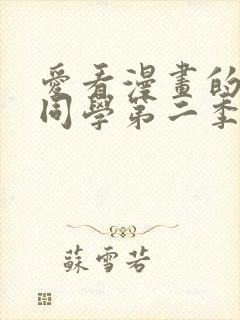 愛看漫畫的
同學第二季
蘇雪若